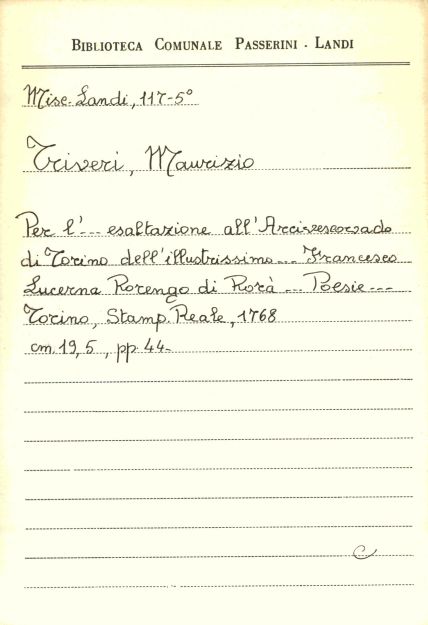 BIBLIOTECA COMUNALE PASSERINI - LANDI
Misc. Landi, 117-5°
Triveri, Maurizio
Per l'... esaltazione all'Arcivescovado
di Torino dell'illustrissimo... Francesco
Lucerna Rorengo di Rorà ... Poesie...
Torino, Stamp. Reale, 1768
cm. 19,5, pp. 44.
C